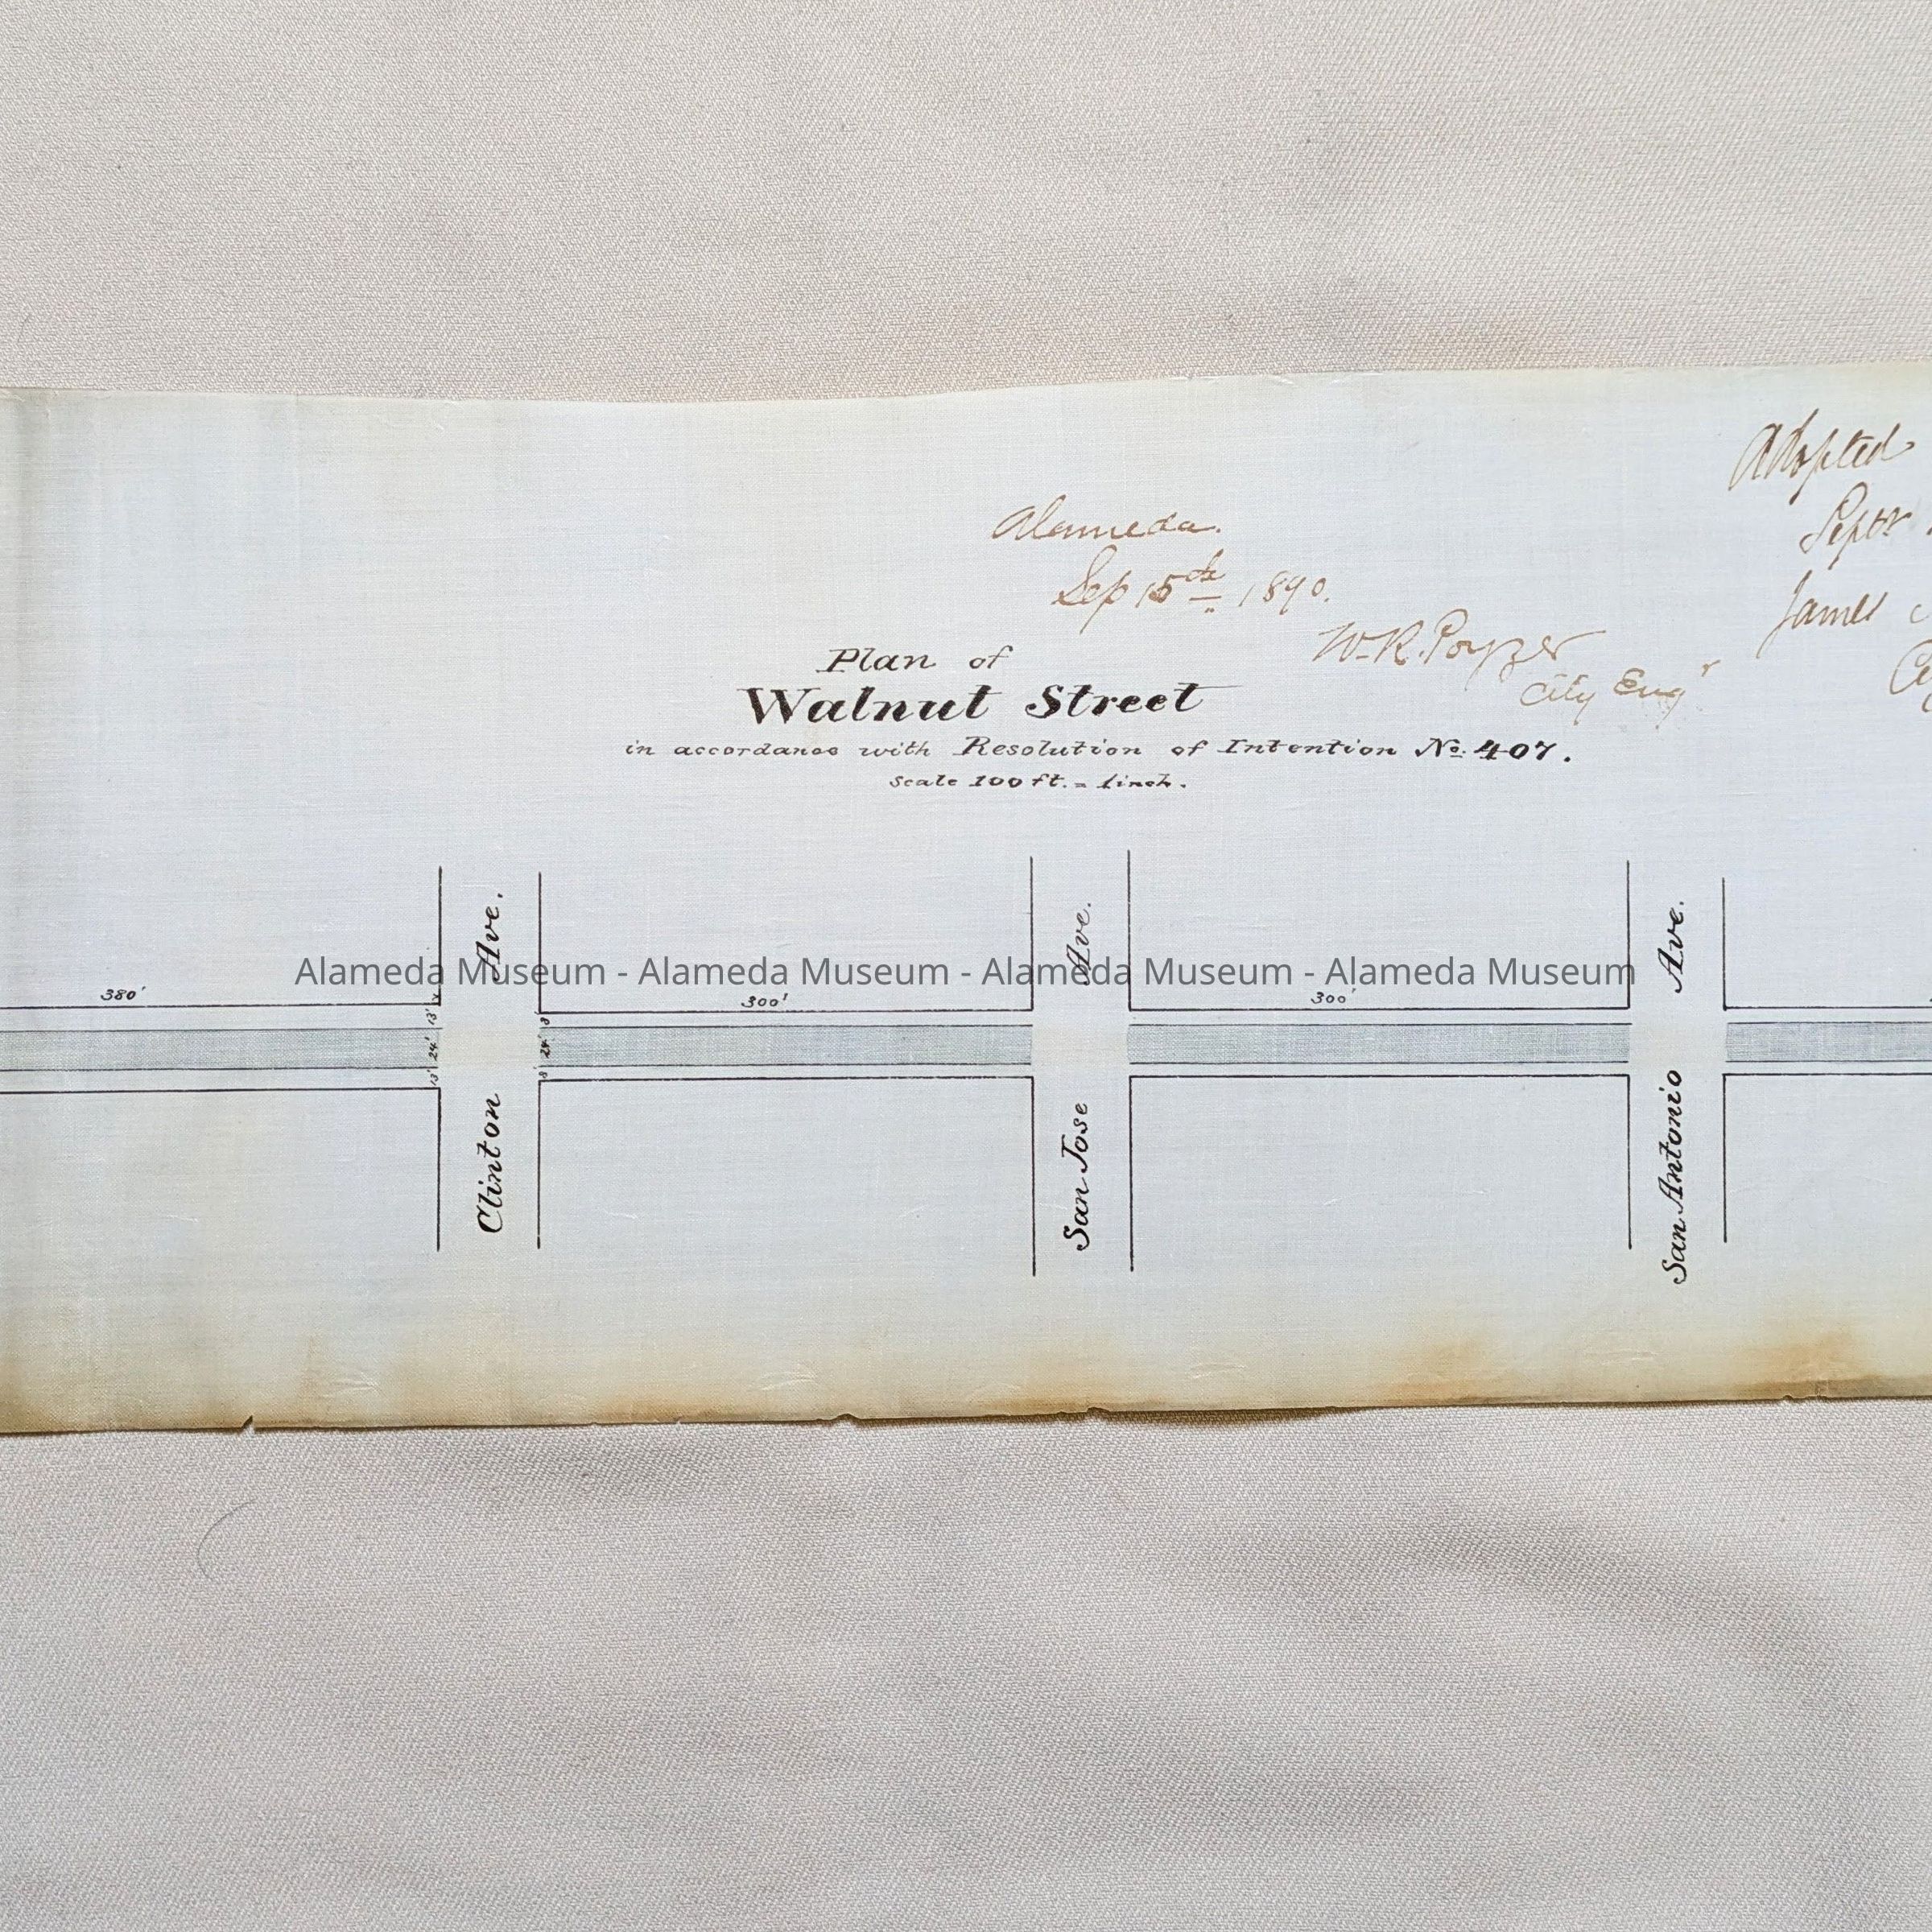 Adopted
Septr
James
Alameda.
Sep 15th 1890.
W. R. Poyzer
City Engr
Plan of
Walnut Street
in accordance with Resolution of Intention No. 407.
Scale 100 ft. = 1 inch.
Clinton Ave.
San Jose Ave.
San Antonio Ave.
Alameda Museum - Alameda Museum - Alameda Museum - Alameda Museum
380'
300'
300'
13'
24'
13'
8'
24'
8'